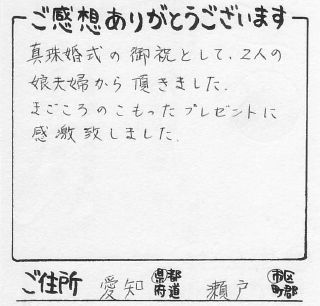 ご感想ありがとうございます
真珠婚式の御祝として、2人の
娘夫婦から頂きました.
まごころのこもったプレゼントに
感激致しました.
ご住所 愛知 都道府県 瀬戸 市区町郡